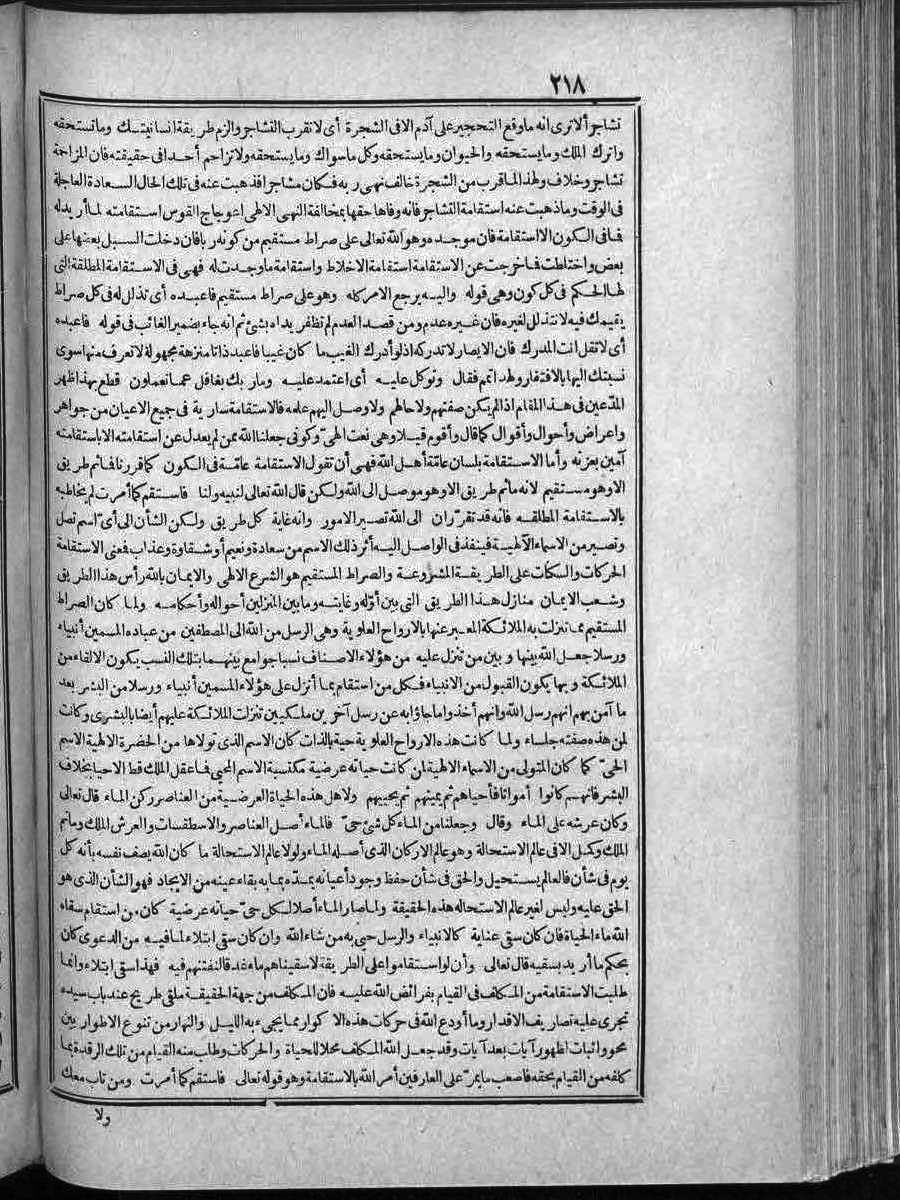 ٢١٨
تشاجر ألا ترى انه ما وقع التحجير على آدم الا فى الشجرة أى لا تقرب التشاجر والزم طريقة انسانيتك وما تستحقه
واترك الملك وما يستحقه والحيوان وما يستحقه وكل ماسواك وما يستحقه ولا تزاحم أحدا فى حقيقته فان المزاحمة
تشاجر وخلاف ولهذا لما قرب من الشجرة خالف نهى ربه فكان مشاجرا فذهبت عنه فى تلك الحال السعادة العاجلة
فى الوقت وما ذهبت عنه استقامة التشاجر فانه وفاها حقها بمخالفة النهى الالهى اعوجاج القوس استقامته لما أريد له
فما فى الكون الا استقامة فان موجده وهو الله تعالى على صراط مستقيم من كونه ربا فان دخلت السبل بعضها على
بعض واختلطت فما خرجت عن الاستقامة استقامة الاخلاط واستقامة ما وجدت له فهى فى الاستقامة المطلقة التى
لها الحكم فى كل كون وهى قوله واليه يرجع الامر كله وهو على صراط مستقيم فاعبده أى تذلل له فى كل صراط
يقيمك فيه لا تتذلل لغيره فان غيره عدم ومن قصد العدم لم تظفر يداه بشئ ثم انه جاء بضمير الغائب فى قوله فاعبده
أى لا تقل انت المدرك فان الابصار لا تدركه اذ لو أدرك الغيب ما كان غيبا فاعبد ذاتا منزهة مجهولة لا تعرف منها سوى
نسبتك اليها بالافتقار ولهذا تمم فقال وتوكل عليه أى اعتمد عليه وما ربك بغافل عما تعملون قطع بهذا ظهر
المدّعين فى هذا المقام اذا لم يكن صفتهم ولا حالهم ولا وصل اليهم علمه فالاستقامة سارية فى جميع الاعيان من جواهر
واعراض وأحوال وأقوال كما قال وأقوم قيلا وهى نعت الهىّ وكونى جعلنا الله ممن لم يعدل عن استقامته الا باستقامته
آمين بعزته وأما الاستقامة بلسان عامّة أهل الله فهى أن تقول الاستقامة عامّة فى الكون كما قررنا فما ثم طريق
الا وهو مستقيم لانه ما ثم طريق الا وهو موصل الى الله ولكن قال الله تعالى لنبيه ولنا فاستقم كما أمرت لم يخاطبه
بالاستقامة المطلقه فانه قد تقرّر ان الى الله تصير الامور وانه غاية كل طريق ولكن الشأن الى أىّ اسم تصل
وتصير من الاسماء الالهية فينفذ فى الواصل اليه أثر ذلك الاسم من سعادة ونعيم أو شقاوة وعذاب فمعنى الاستقامة
الحركات والسكنات على الطريقة المشروعة والصراط المستقيم هو الشرع الالهى والايمان بالله رأس هذا الطريق
وشعب الايمان منازل هذا الطريق التى بين أوّله وغايته وما بين المنزلين أحواله وأحكامه ولما كان الصراط
المستقيم مما تنزلت به الملائكة المعبر عنها بالارواح العلوية وهى الرسل من الله الى المصطفين من عباده المسمين أنبياء
ورسلا جعل الله بينها وبين من تنزل عليه من هؤلاء الاصناف نسبا جوامع بينهما بتلك النسب يكون الالقاء من
الملائكة وبها يكون القبول من الانبياء فكل من استقام بما أنزل على هؤلاء المسمين أنبياء ورسلا من البشر بعد
ما آمن بهم انهم رسل الله وانهم أخذوا ما جاؤا به عن رسل آخرين ملكيين تنزلت الملائكة عليهم أيضا بالبشرى وكانت
لمن هذه صفته جلساء ولما كانت هذه الارواح العلوية حية بالذات كان الاسم الذى تولاها من الحضرة الالهية الاسم
الحىّ كما كان المتولى من الاسماء الالهية لمن كانت حياته عرضية مكتسبة الاسم المحيى فما عقل الملك قط الا حيا بخلاف
البشر فانهم كانوا أمواتا فأحياهم ثم يميتهم ثم يحييهم ولاهل هذه الحياة العرضية من العناصر ركن الماء قال تعالى
وكان عرشه على الماء وقال وجعلنا من الماء كل شئ حىّ فالماء أصل العناصر والاسطقسات والعرش الملك وما تم
الملك وكمل الا فى عالم الاستحالة وهو عالم الاركان الذى أصله الماء ولولا عالم الاستحالة ما كان الله يصف نفسه بأنه كل
يوم فى شأن فالعالم يستحيل والحق فى شأن حفظ وجود أعيانه يمدّه بما به بقاء عينه من الايجاد فهو الشأن الذى هو
الحق عليه وليس لغير عالم الاستحاله هذه الحقيقة ولما صار الماء أصلا لكل حىّ حياته عرضية كان من استقام سقاه
الله ماء الحياة فان كان سقى عناية كالانبياء والرسل حيى به من شاء الله وان كان سقى ابتلاء لما فيه من الدعوى كان
بحكم ما أريد بسقيه قال تعالى وأن لو استقاموا على الطريقة لاسقيناهم ماء غدقا لنفتنهم فيه فهذا سقى ابتلاء وانما
طلبت الاستقامة من المكلف فى القيام بفرائض الله عليه فان المكلف من جهة الحقيقة ملقى طريح عند باب سيده
تجرى عليه تصاريف الاقدار وما أودع الله فى حركات هذه الاكوار مما يجىء به الليل والنهار من تنوع الاطوار بين
محو واثبات لظهور آيات بعد آيات وقد جعل الله المكلف محلا للحياة والحركات وطلب منه القيام من تلك الرقدة بما
كلفه من القيام بحقه فاصعب ما يمرّ على العارفين أمر الله بالاستقامة وهو قوله تعالى فاستقم كما أمرت ومن تاب معك
ولا